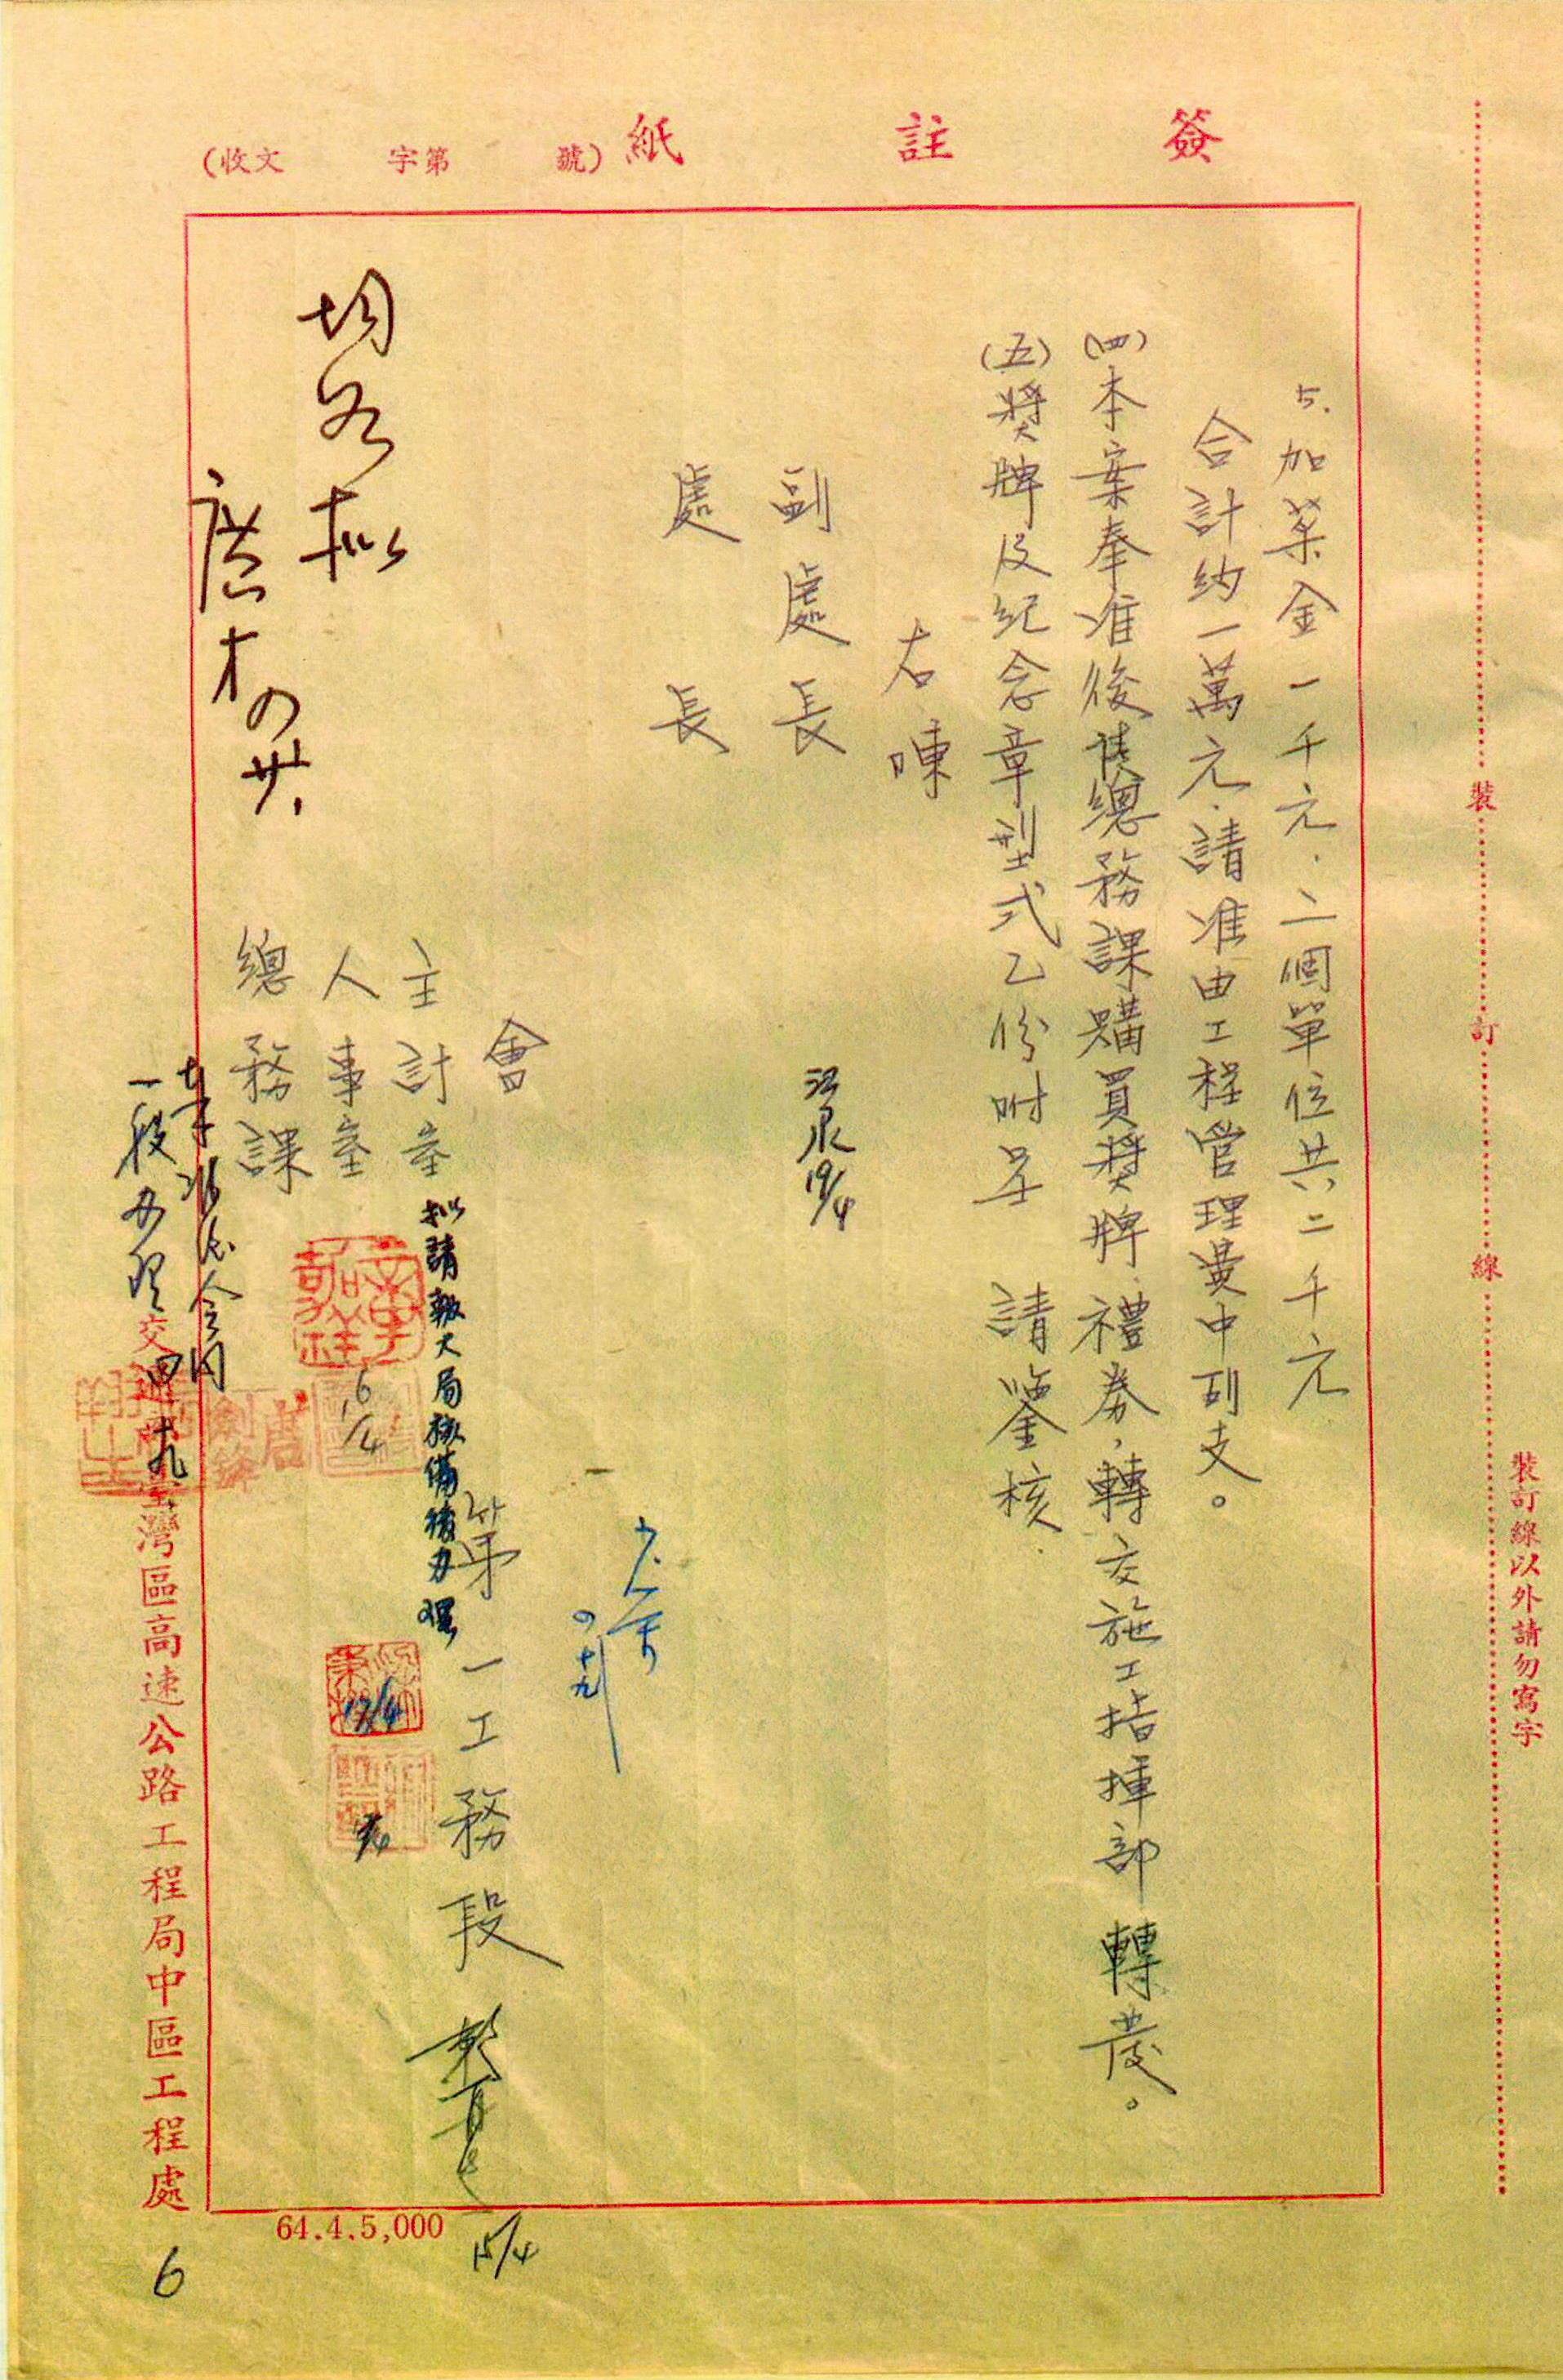 簽註紙
(收文 字第 號)
5.加菜金一千元.二個單位共二千元
合計約一萬元.請准由工程管理費中列支。
(四)本案奉准後請總務課購買獎牌.禮券,轉交施工指揮部轉發。
(五)獎牌及紀念章型式乙份附呈 請鑒核.
右陳
副處長
處長
19/4
第一工務段
15/4
會
主計室
擬請報大局核備後办理
17/4
人事室
16/4
總務課
交通部臺灣區高速公路工程局中區工程處
64.4.5,000
6
裝
訂
線
裝訂線以外請勿寫字